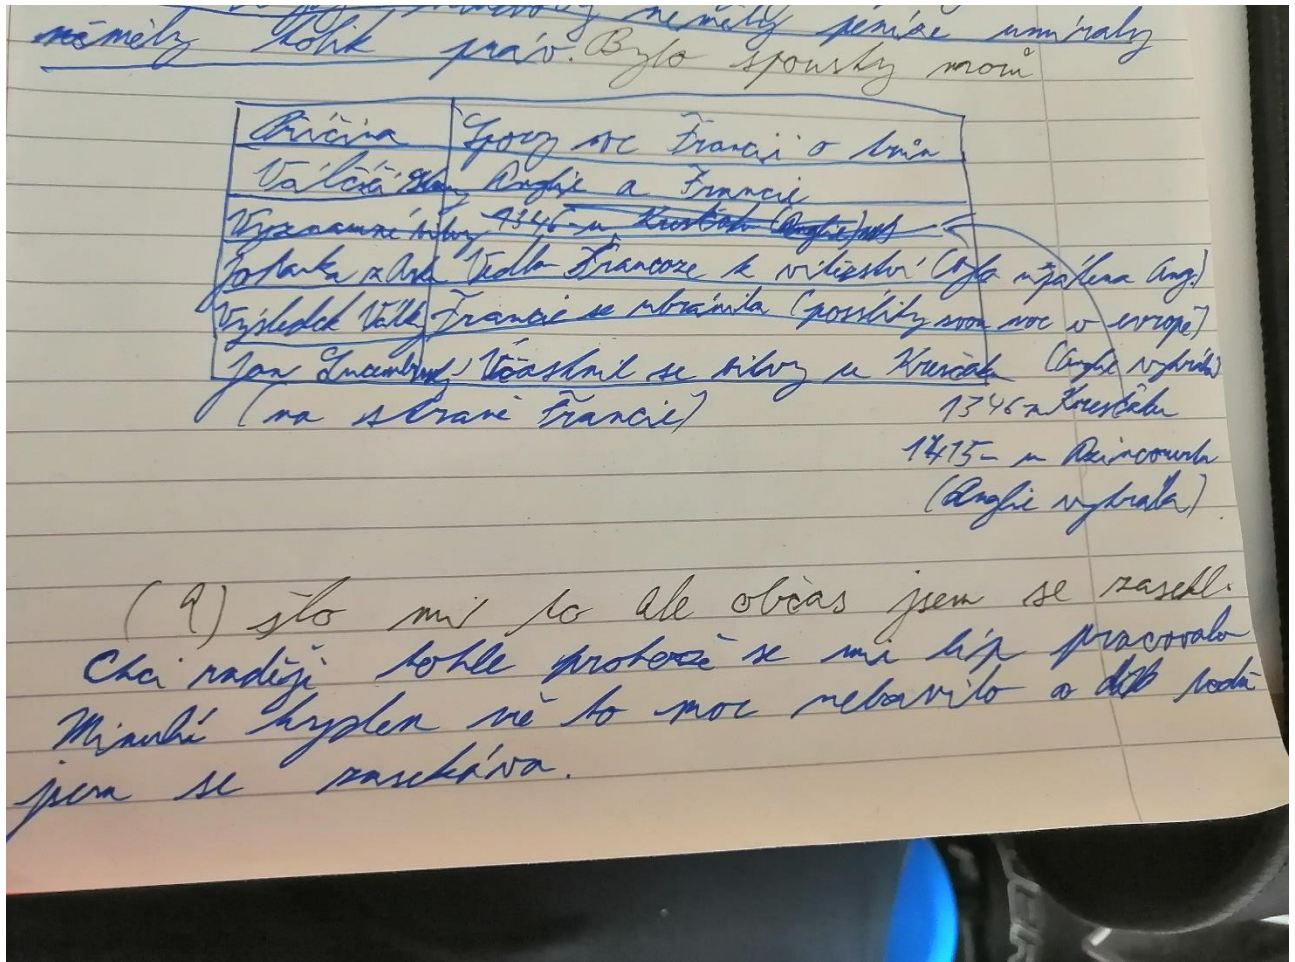 neměly peníze umíraly
neměly tolik práv. Bylo spousty
Příčina Spory Francii o trůn
Válčící Anglie a Francie
Významné bitvy 1346-u Kresčaku (Anglie)
Vedla Francoze k vítězství (byla upálena Ang.)
Výsledek Války Francie se ubránila (posílily svou moc v evropě)
Jan Lucemburský Účastnil se bitvy u Kresčaku (Anglie vyhrála)
(na straně Francie) 1346-u Kresčaku
1415- u Azincourtu
(Anglie vyhrála)
(9) šlo mi to ale občas jsem se zasekl.
Chci raději tohle protože se mi líp pracovalo
Minulí týden mě to moc nebavilo a
jsem se zasekáva.